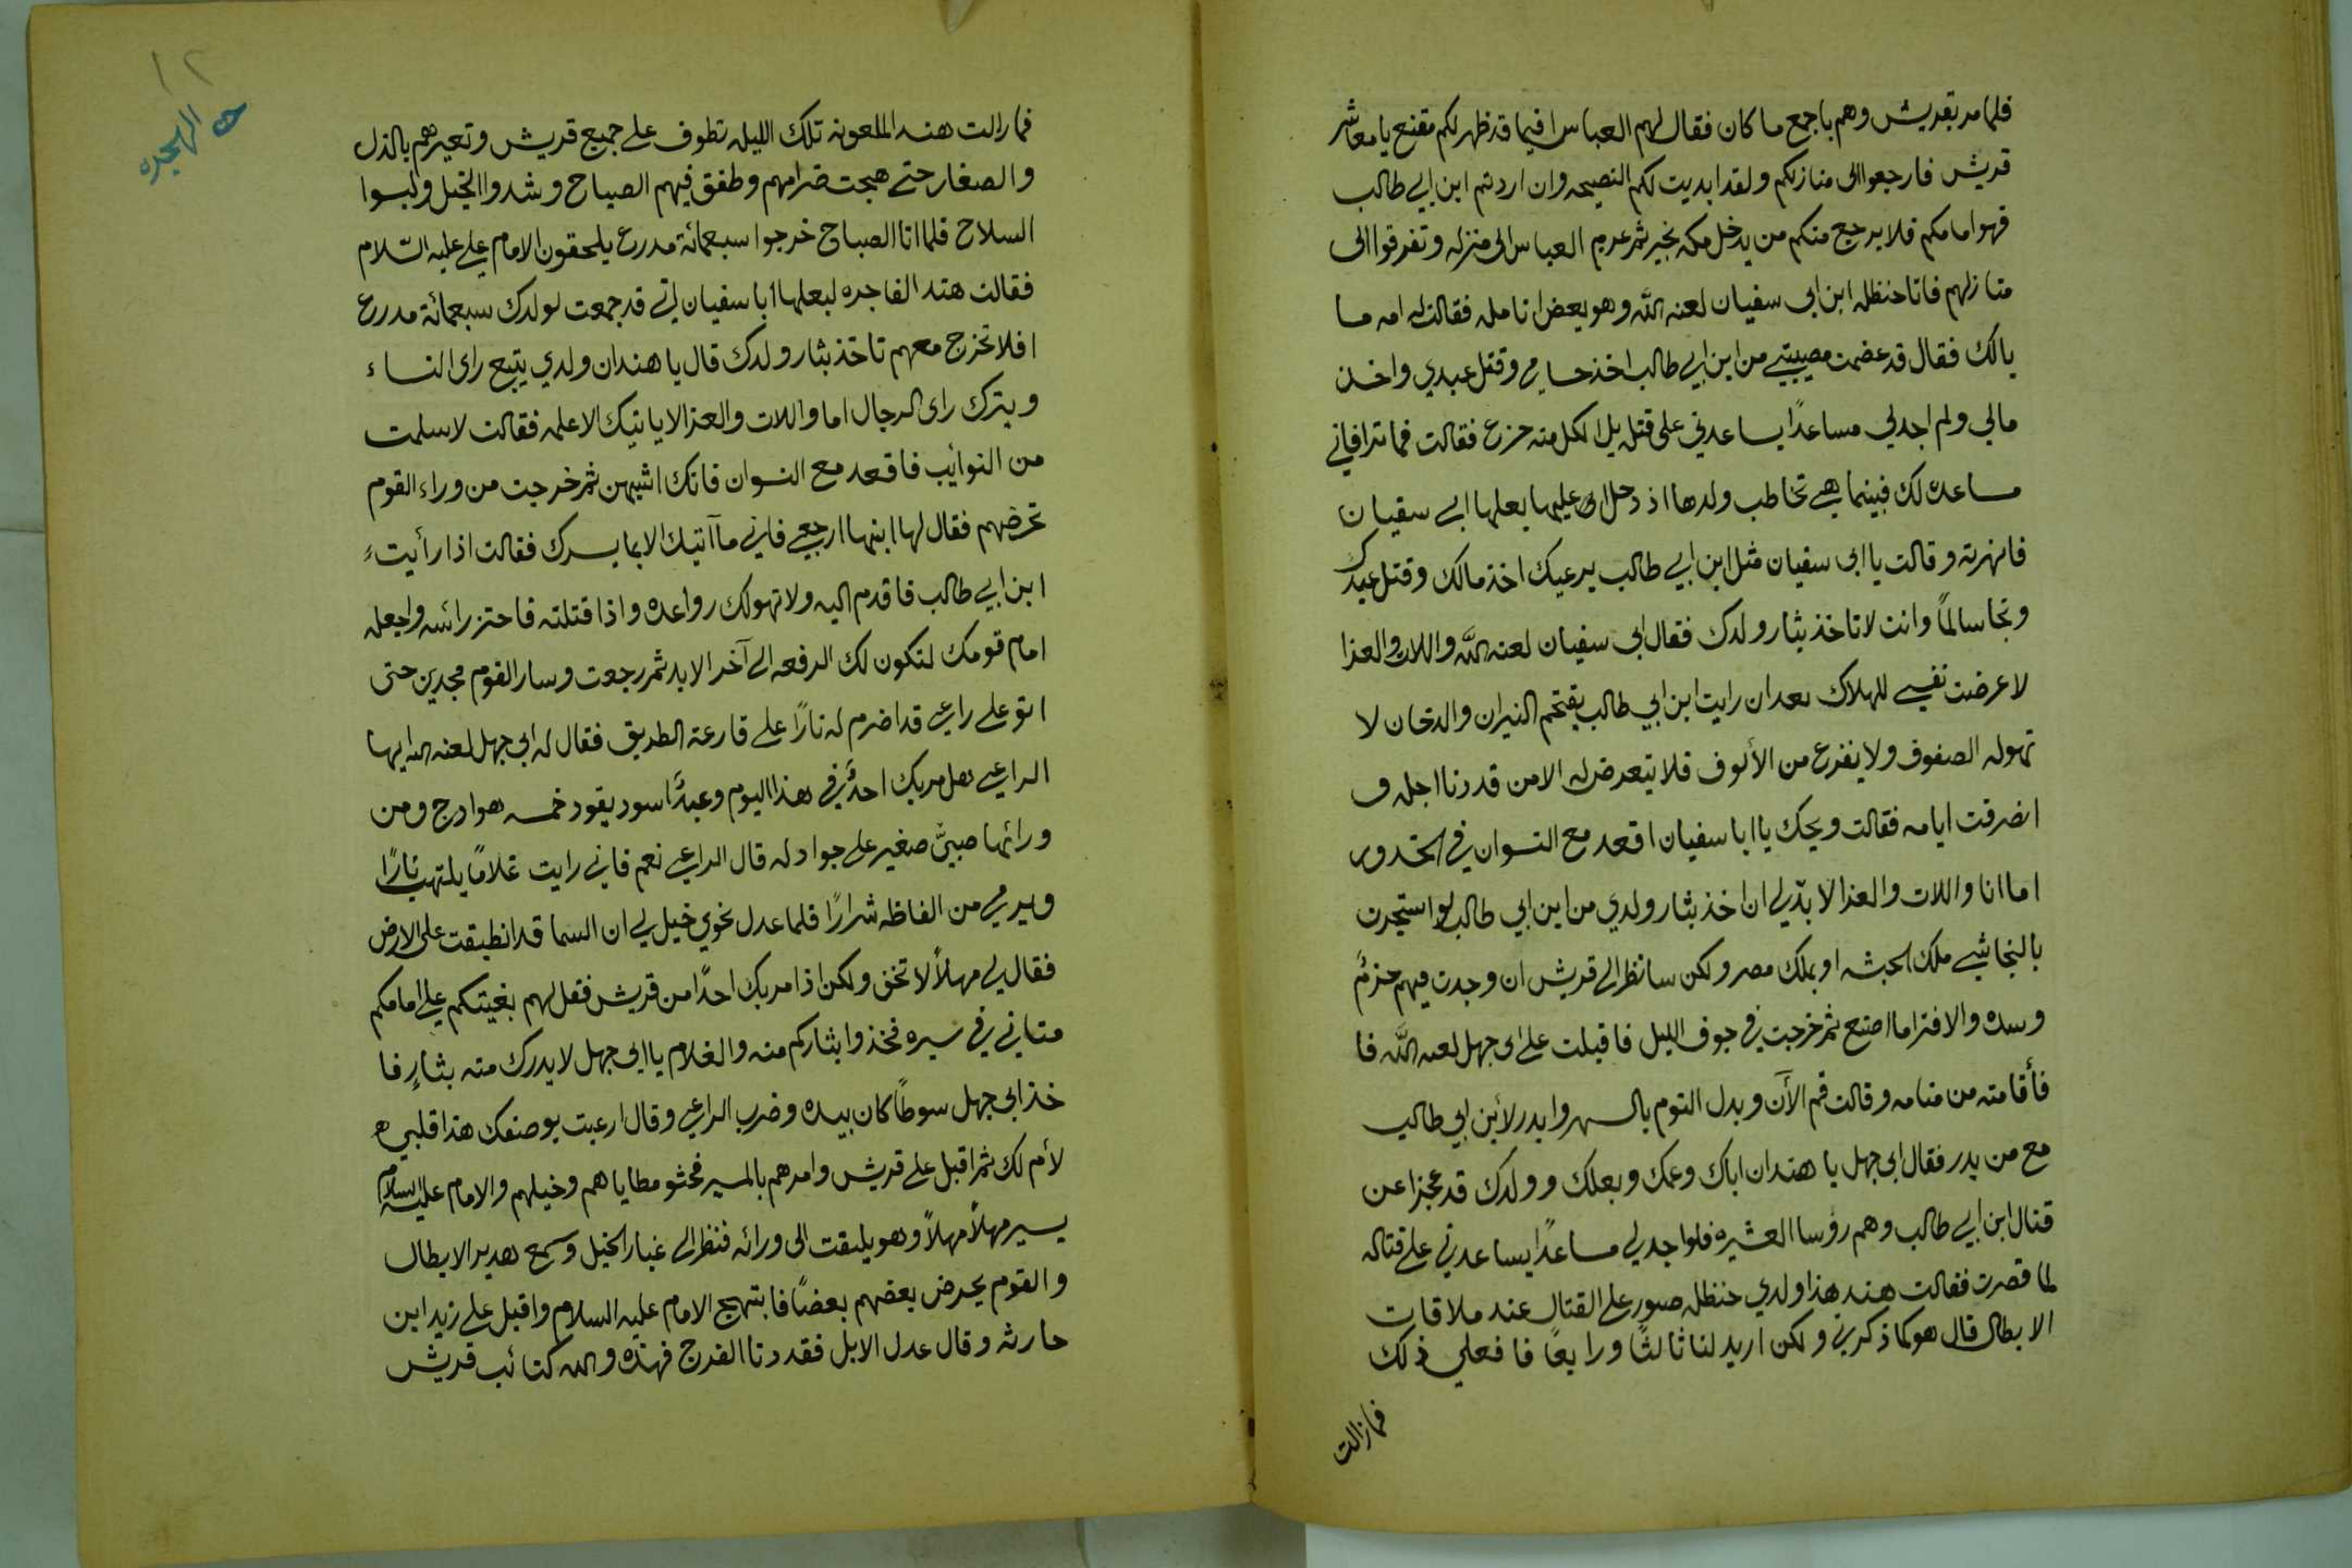 فلما مر بقريش وهم باجمع ما كان فقال لهم العباس افيما قد ظهر لكم مقنع يا معاشر
قريش فارجعوا الى منازلكم ولقد ابديت لكم النصيحه وان اردتم ابن ابي طالب
فهو امامكم فلا يرجع منكم من يدخل مكه بخير ثم عرم العباس الى منزله وتفرقوا الى
منازلهم فاتا حنظله ابن ابى سفيان لعنه الله وهو يعض انامله فقالت له امه ما
بالك فقال قد عضمت مصيبتي من ابن ابي طالب اخذ حسامي وقتل عبدي واخذ
مالي ولم اجد لي مساعدًا يساعدني على قتله بل الكل منه جزع فقالت فما تراني
مساعده لك فبينما هي تخاطب ولدها اذ دخل عليها بعلها ابي سفيان
فانهرته وقالت يا ابى سفيان مثل ابن ابي طالب يرعبك اخذ مالك وقتل عبدك
ونجا سالمًا وانت لا تاخذ بثار ولدك فقال ابى سفيان لعنه الله واللات والعزا
لا عرضت نفسي للهلاك بعد ان رايت ابن ابي طالب يقتحم النيران والدخان لا
تهوله الصفوف ولا يفزع من الألوف فلا يتعرض له الا من قد دنا اجله و
انصرفت ايامه فقالت ويحك يا ابا سفيان اقعد مع النسوان في الخدور
اما انا واللات والعزا لا بدّ لي ان اخذ بثار ولدي من ابن ابي طالب لو استجرت
بالنجاشي ملك الحبشه او بملك مصر ولكن سانظر الى قريش ان وجدت فيهم حزمٌ
وسده والا فترا ما اصنع ثم خرجت في جوف الليل فاقبلت على ابى جهل لعنه الله فا
فأقامته من منامه وقالت قم الأن وبدل النوم بالسهر وابدر لأبن ابي طالب
مع من بدر فقال ابى جهل يا هند ان اباك وعمك وبعلك وولدك قد عجزا عن
قتال ابن ابي طالب وهم رؤسا العشيره فلو اجد لي مساعدًا يساعدني على قتاله
لما قصرت فقالت هند هذا ولدي حنظله صبور على القتال عند ملاقات
الابطال قال هو كما ذكرتي ولكن اريد لنا ثالثًا ورابعًا فافعلي ذلك
فمازالت
١٢
الهجره
فمازالت هند الملعونه تلك الليله تطوف على جميع قريش وتعيرهم بالذل
والصغار حتى هيجت ضرامهم وطفق فيهم الصياح وشدوا الخيل ولبسوا
السلاح فلما اتا الصباح خرجوا سبعمائة مدرع يلحقون الامام علي عليه السّلام
فقالت هند الفاجره لبعلها ابا سفيان اني قد جمعت لولدك سبعمائة مدرع
افلا تخرج معهم تاخذ بثار ولدك قال يا هند ان ولدي يتبع راى النساء
ويترك راى الرجال اما واللات والعزا لا ياتيك الا علمه فقالت لا سلمت
من النوائب فاقعد مع النسوان فانك اشبههن ثم خرجت من وراء القوم
تحرضهم فقال لها ابنها ارجعي فاني ما آتيك الا بما يسرك فقالت اذا رأيت
ابن ابي طالب فاقدم اليه ولا تهولك رواعده واذا قتلته فاحتز رائسه واجعله
امام قومك لتكون لك الرفعه الى آخر الابد ثم رجعت وسار القوم مجدين حتى
اتو على راعي قد اضرم له نارًا على قارعة الطريق فقال له ابى جهل لعنه الله ايها
الراعي هل مر بك احدٌ في هذا اليوم وعبدًا اسود يقود خمسه هوادج ومن
ورائها صبيّ صغير على جواد له قال الراعي نعم فاني رايت غلامًا يلتهب نارًا
ويرمي من الفاظه شرارًا فلما عدل نحوي خيل لي ان السما قد انطبقت على الارض
فقال لي مهلاً لا تخف ولكن اذا مر بك احدًا من قريش فقل لهم بغيتكم علي امامكم
متاني في سيره فخذوا بثاركم منه والغلام يا ابى جهل لا يدرك منه بثارٍ فا
خذ ابى جهل سوطًا كان بيده وضرب الراعي وقال ارعبت بوصفك هذا قلبي
لأم لك ثم اقبل على قريش وامرهم بالمسير فحثو مطاياهم وخيلهم والامام عليه السلام
يسير مهلاً مهلاً وهو يلتفت الى ورائه فنظر الى غبار الخيل وسمع هدير الابطال
والقوم يحرض بعضهم بعضًا فابتهج الامام عليه السلام واقبل على زيد ابن
حارثه وقال عدل الابل فقد دنا الفرج فهذه والله كتائب قريش